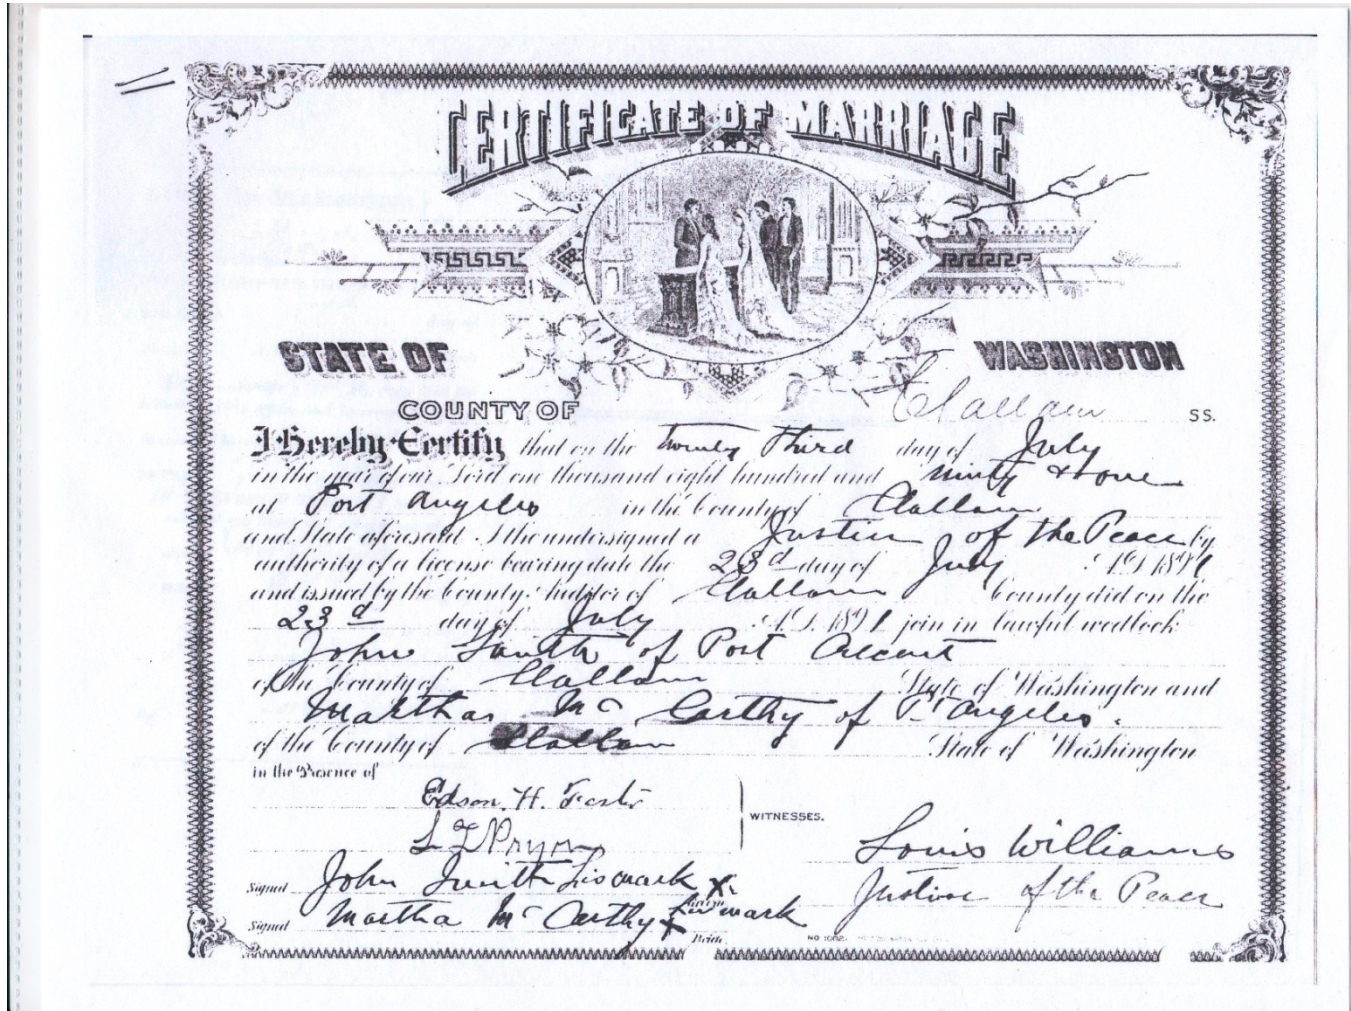 CERTIFICATE OF MARRIAGE
STATE OF WASHINGTON
COUNTY OF Clallam SS.
I Hereby Certify that on the twenty third day of July
in the year of our Lord one thousand eight hundred and ninty & one
at Port Angeles in the County of Clallam
and State aforesaid I the undersigned a Justice of the Peace by
authority of a license bearing date the 23d day of July A.D. 1891
and issued by the County Auditor of Clallam County did on the
23d day of July A.D. 1891 join in lawful wedlock
John Smith of Port Crescent
of the County of Clallam State of Washington and
Martha Mc Carthy of Pt Angeles.
of the County of Clallam State of Washington
in the Presence of
Edson H.
WITNESSES.
Louis Williams
Justice of the Peace
Signed John Smith his mark X Groom
Signed Martha Mc Carthy X her mark
Bride.
NO 1002.